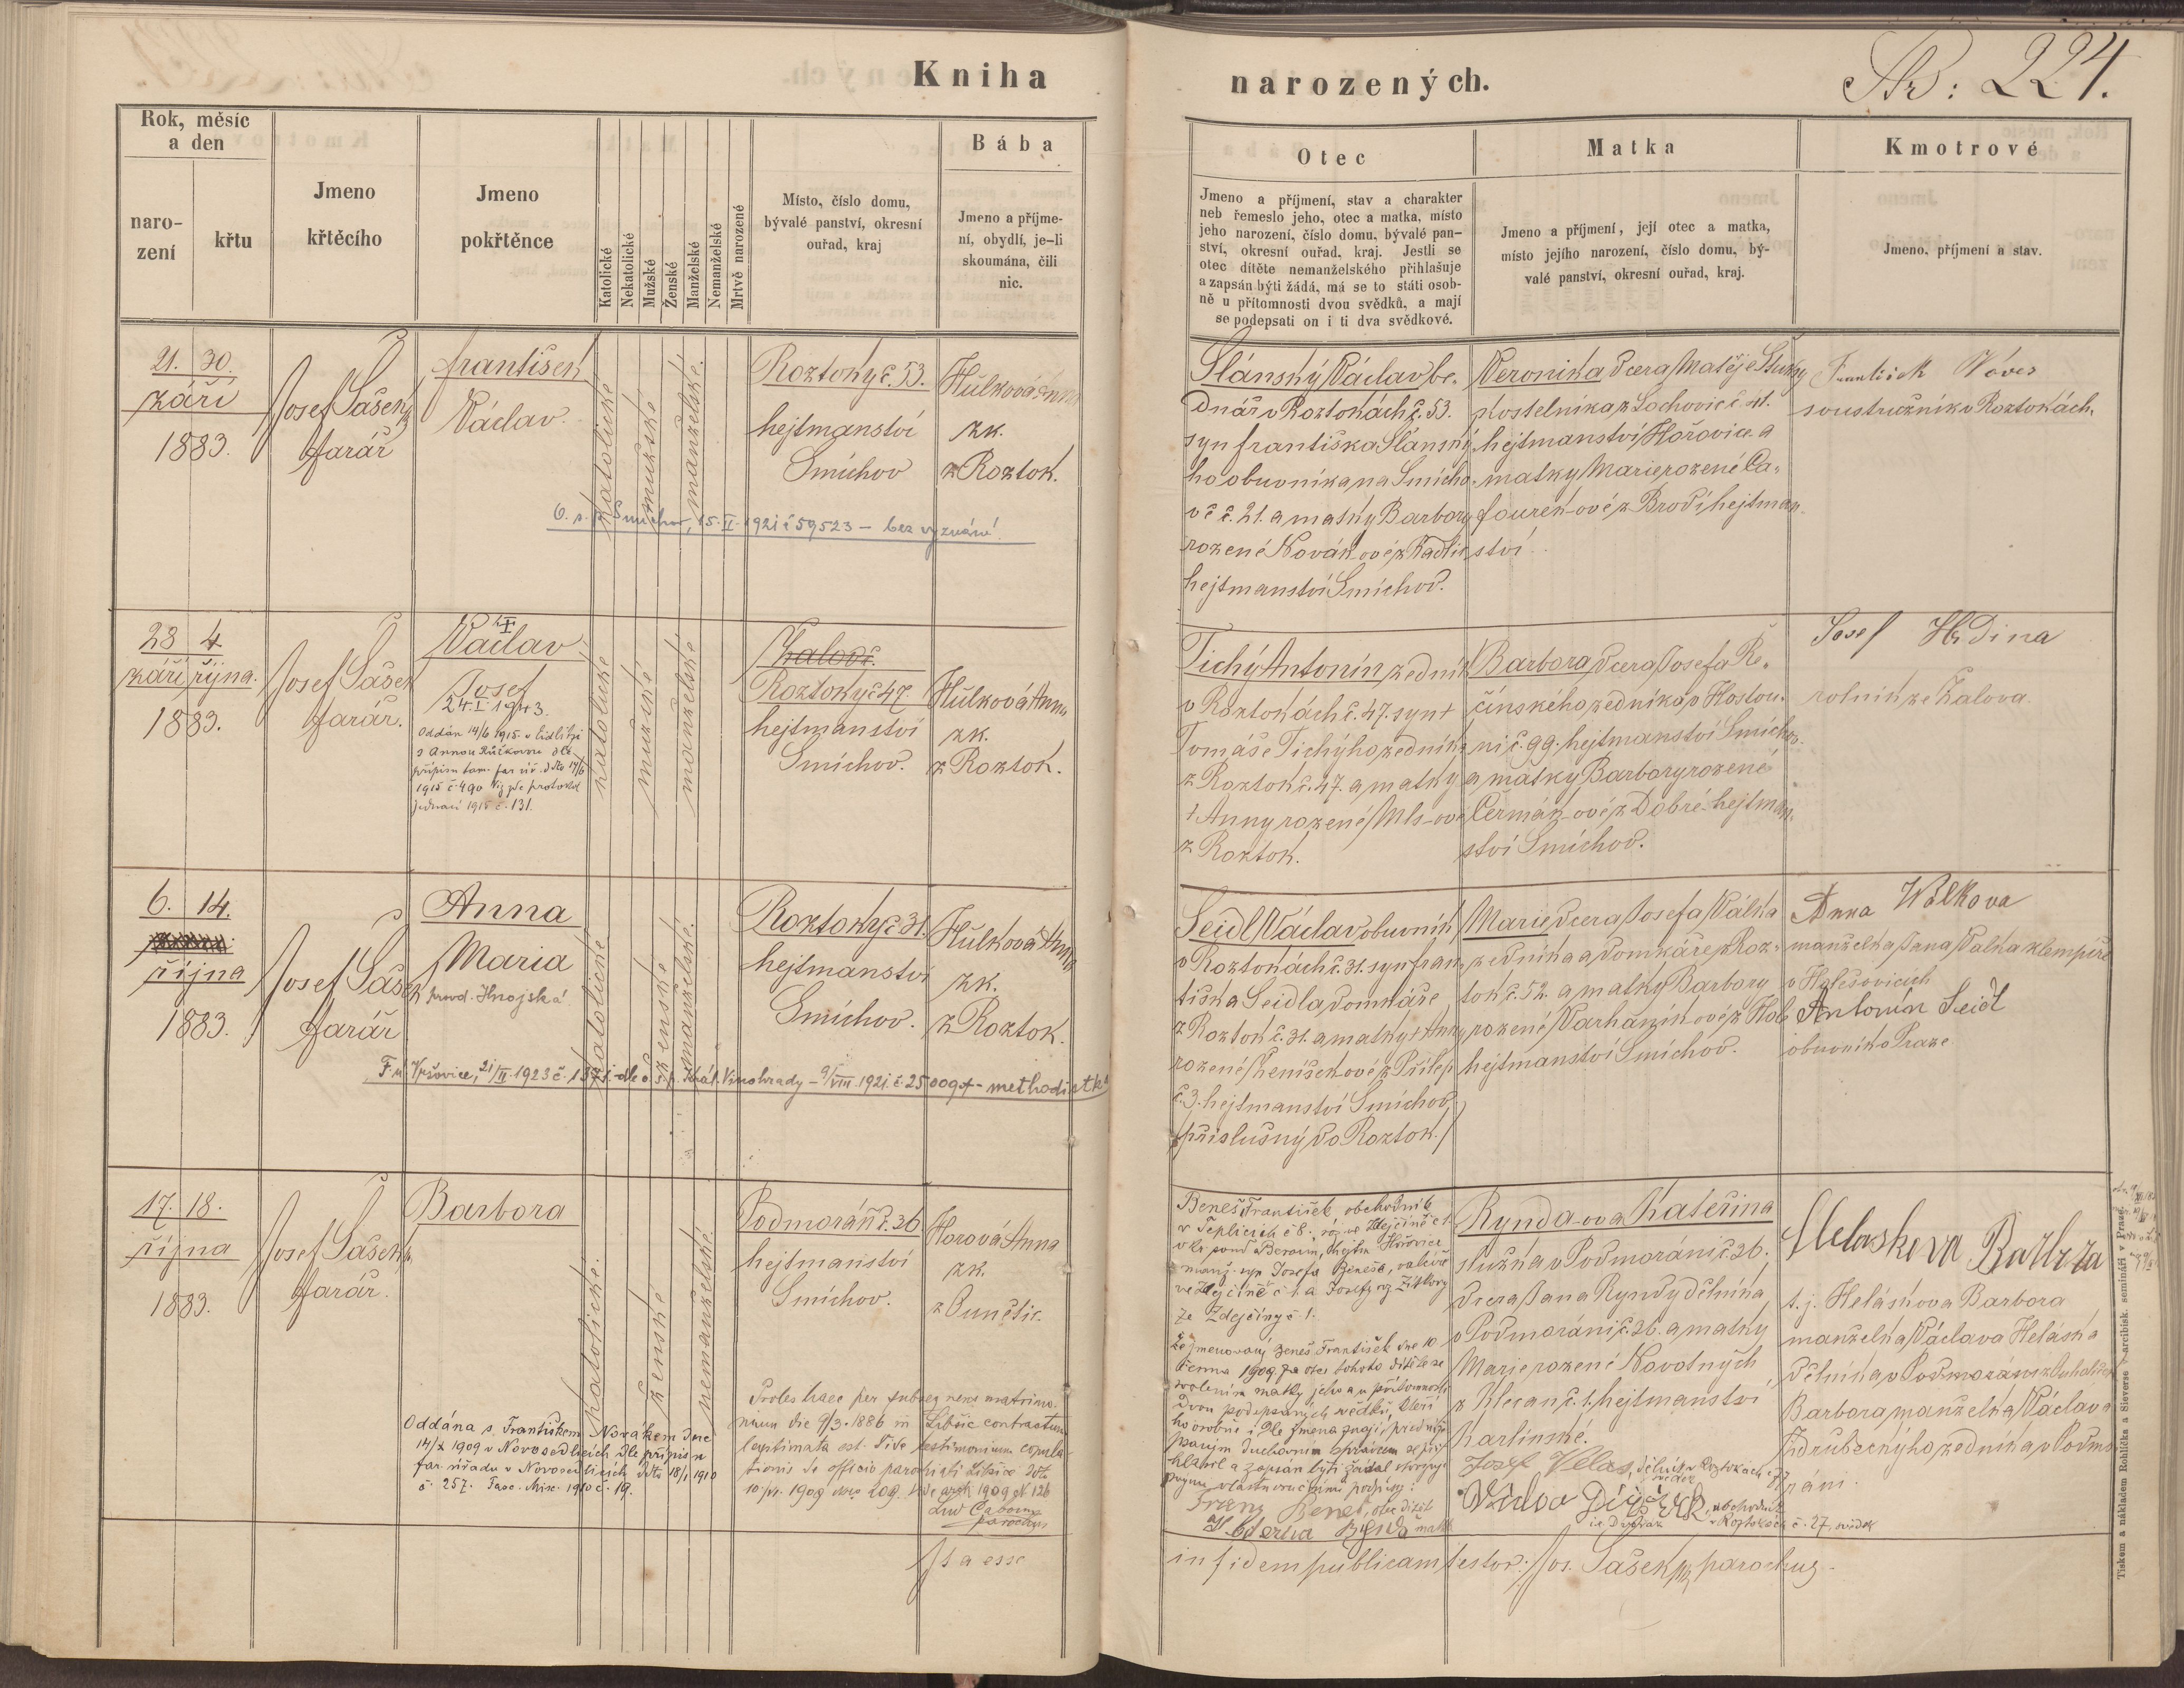 Kniha
narozených.
Str: 224.
Rok, měsíc
a den
naro-
zení
křtu
Jmeno
křtěcího
Jmeno
pokřtěnce
Katolické
Nekatolické
Mužské
Ženské
Manželské
Nemanželské
Mrtvě narozené
Místo, číslo domu,
bývalé panství, okresní
ouřad, kraj
Bába
Jmeno a příjme-
ní, obydlí, je-li
skoumána, čili
nic.
Otec
Jmeno a příjmení, stav a charakter
neb řemeslo jeho, otec a matka, místo
jeho narození, číslo domu, bývalé pan-
ství, okresní ouřad, kraj. Jestli se
otec dítěte nemanželského přihlašuje
a zapsán býti žádá, má se to státi osob-
ně u přítomnosti dvou svědků, a mají
se podepsati on i ti dva svědkové.
Matka
Jmeno a příjmení, její otec a matka,
místo jejího narození, číslo domu, bý-
valé panství, okresní ouřad, kraj.
Kmotrové
Jmeno, příjmení a stav.
21. 30.
září
1883.
Josef Sášek
farář
František
Václav.
katolické
mužské
manželské.
Roztoky č. 53.
hejtmanství
Smíchov
Hůlková Anna
zk.
z Roztok.
Smíchov, 15. II. 1921 č 59523 – bez vyznání
Slánský Václav be-
dnář v Roztokách č. 53.
syn Františka Slánský-
ho obuvníka na Smícho-
vě č. 21. a matky Barbory
rozené Novák-ové z Radlic
hejtmanství Smíchov.
Veronika dcera Matěje
kostelníka z Lochovic č 41.
hejtmanství Hořovice a
matky Marie rozené Ca-
fourek-ové z Brodí hejtman-
ství.
František Nóves
soustružník v Roztokách.
28 4
září října.
1883.
Josef Sášek
farář.
Václav
Josef
24. I 1943.
Oddán 14/6 1915 v
s Annou Růčkovou dle
přípisu tam. far úř. ddto 14/6
1915 č. 490 Viz zde protokol
jednací 1915 č. 131.
katolické
mužské
manželské
Žalov č.
Roztoky č 47.
hejtmanství
Smíchov.
Hůlková Anna
zk.
z Roztok.
Tichý Antonín zedník
v Roztokách č. 47. syn +
Tomáše Tichýho zedníka
z Roztok č. 47. a matky
+ Anny rozené Mls-ové
z Roztok.
Barbora dcera Josefa Ře-
čínského zedníka v Hostou-
ni č. 99. hejtmanství Smíchov.
a matky Barbory rozené
Čermák-ové z Dobré hejtman-
ství Smíchov.
Josef Hrdina
rolník ze Žalova.
6. 14.
října
1883.
Josef Sášek
farář
Anna
Maria
prov. Hnojská
katolické
ženské
manželské.
Roztoky č 31.
hejtmanství
Smíchov.
Hůlková Anna
zk.
z Roztok.
Vršovice, 21/II. 1923 č. dle Král. Vinohrady – 9/VIII. 1921. č. 25009 – methodistka
Seidl Václav obuvník
v Roztokách č. 31. syn Fran-
tiška Seidla domkáře
z Roztok č. 31. a matky + Anny
rozené Heníšek-ové z Přílep
č. 3. hejtmanství Smíchov,
/příslušný do Roztok./
Marie dcera Josefa Válka
zedníka a domkáře z Roz-
tok č. 52. a matky Barbory
rozené Varhaník-ové z
hejtmanství Smíchov.
Anna Wolkova
manželka Jana Válka klempíře
v Holešovicích
Antonín Seidl
obuvník v Praze
17. 18.
října
1883.
Josef Sášek
farář.
Barbora
katolické.
ženské
nemanželské.
Podmoráň č. 36
hejtmanství
Smíchov.
Horová Anna
zk.
z Únětic.
Oddána s Františkem Novákem dne
14/X 1909 v Novosedlicích dle přípisu
far. úřadu v Novosedlicích ddto 18/1 1910
č. 257. Fasc. Misc. 1910 č. 19.
Proles haec per subsequens matrimo-
nium die 9/3. 1886 in Libšic contractum
legitimata est. Vide testimonium copula-
tionis de officio parochiali Libšice ddto
10/VI. 1909 No 209. Vide arch 1909 N 126
parochus
Ita esse
Beneš František obchodník
v Teplicích č 8.
manž. syn Josefa Beneše,
ve Zdejčině č 1. a Josefy roz. Zitkovy
ze Zdejčiny č 1.
že jmenovaný Beneš František dne 10
června 1909 za otce tohoto dítěte se
svolením matky jeho a u přítomnosti
dvou podepsaných svědků, kteří
ho osobně i dle jména znají, přede mnou
psaným duchovním správcem se při-
hlásil a zapsán býti žádal
vlastnoručními podpisy:
Franz Beneš, otec dítěte
Rynda matka
Rynda-ova Kateřina
služka v Podmoráni č 36.
dcera Jana Ryndy dělníka
v Podmoráni č. 36. a matky
Marie rozené Novotných
z Klecan č. 1. hejtmanství
Karlínské.
Josef Velas, dělník v Roztokách č 77
svědek
obchodník
v Roztokách č. 27, svědek
Helaskova Barbora
t. j. Helásková Barbora
manželka Václava Heláska
dělníka v Podmoráni
Barbora manželka Václava
zedníka v Podmo-
ráni.
in fidem publicam testor: Jos. Sášek parochus
Tiskem a nákladem Rohlíčka a Sieverse v arcibisk. semináři v Praze.